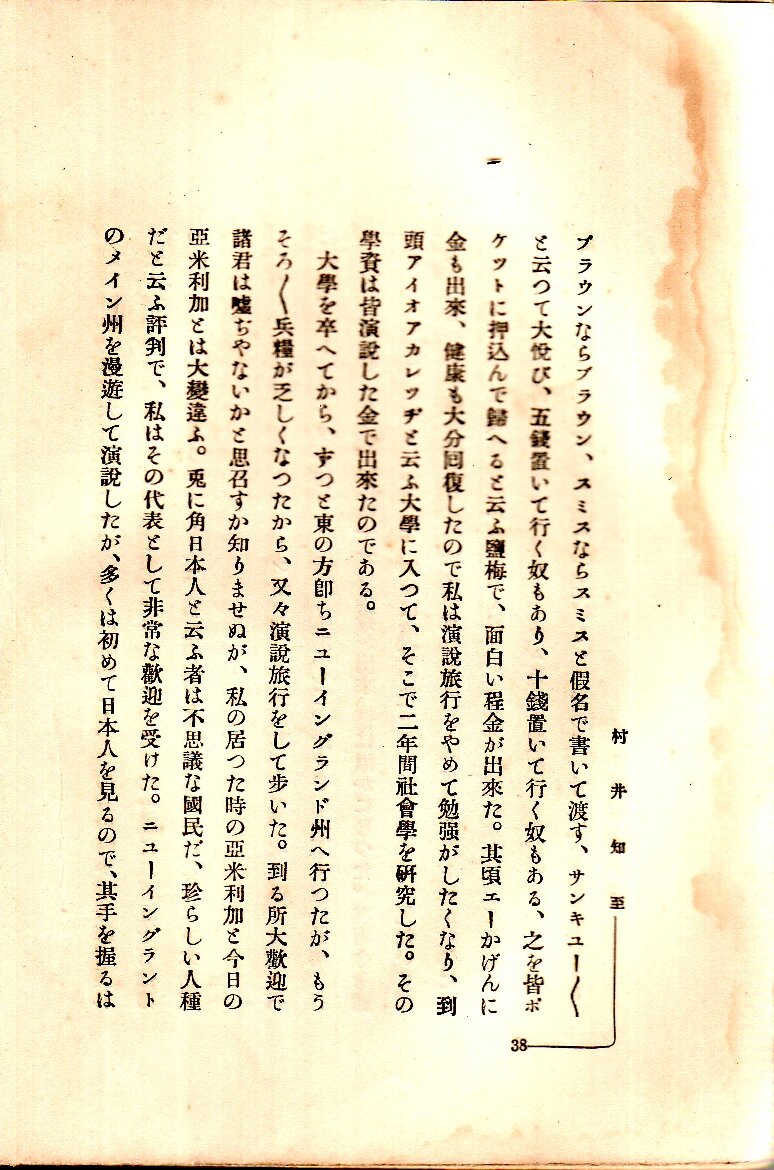 村井知至
38
ブラウンならブラウン、スミスならスミスと假名で書いて渡す、サンキユー〱
と云つて大悅び、五錢置いて行く奴もあり、十錢置いて行く奴もある、之を皆ポ
ケツトに押込んで歸へると云ふ鹽梅で、面白い程金が出來た。其頃エーかげんに
金も出來、健康も大分回復したので私は演說旅行をやめて勉强がしたくなり、到
頭アイオアカレッヂと云ふ大學に入つて、そこで二年間社會學を硏究した。その
學資は皆演說した金で出來たのである。
大學を卒へてから、ずつと東の方卽ちニューイングランド州へ行つたが、もう
そろ〱兵糧が乏しくなつたから、又々演說旅行をして步いた。到る所大歡迎で
諸君は噓ぢやないかと思召すか知りませぬが、私の居つた時の亞米利加と今日の
亞米利加とは大變違ふ。兎に角日本人と云ふ者は不思議な國民だ、珍らしい人種
だと云ふ評判で、私はその代表として非常な歡迎を受けた。ニューイングラント
のメイン州を漫遊して演說したが、多くは初めて日本人を見るので、其手を握るは